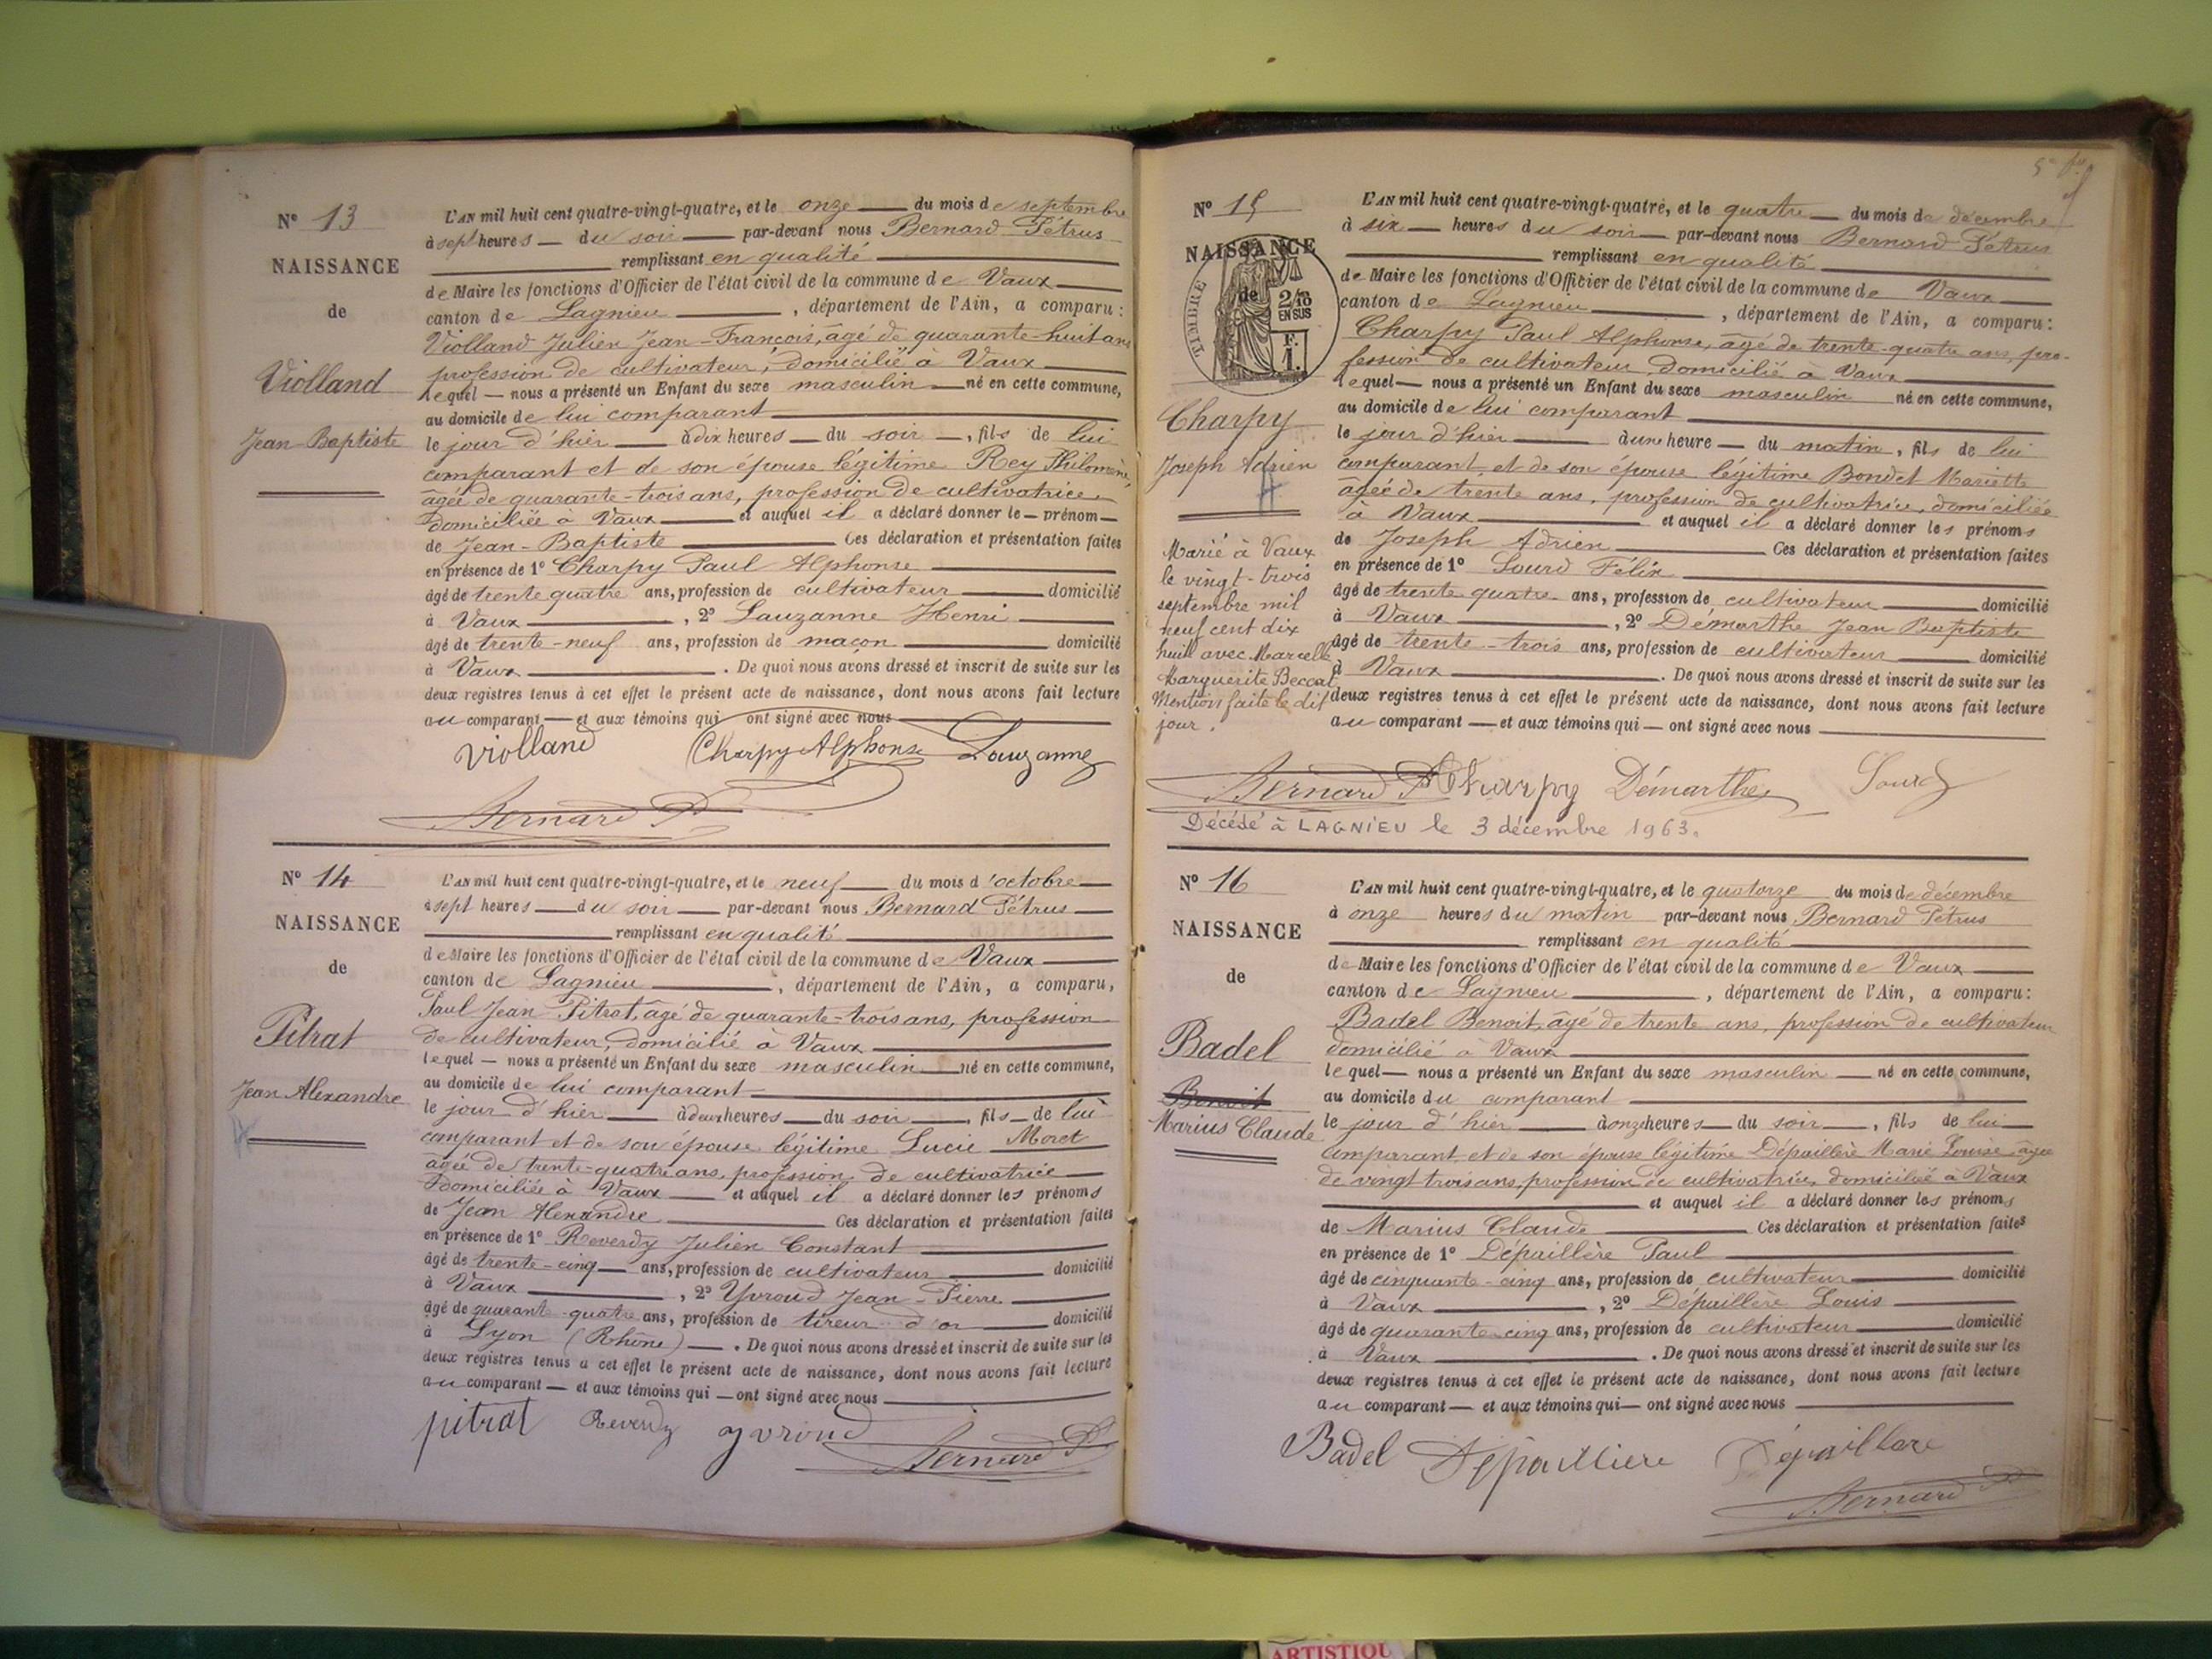 Nº 13
NAISSANCE
de
Violland
Jean-Baptiste
L'AN mil huit cent quatre-vingt-quatre, et le onze du mois de septembre
à sept heures du soir par-devant nous Bernard Pétrus
remplissant en qualité
de Maire les fonctions d'Officier de l'état civil de la commune de Vaux
canton de Lagnieu, département de l'Ain, a comparu :
Violland Julien Jean-François, âgé de quarante-huit ans
profession de cultivateur, domicilié à Vaux
lequel nous a présenté un Enfant du sexe masculin né en cette commune,
au domicile de lui comparant
le jour d'hier à dix heures du soir, fils de lui
comparant et de son épouse légitime Rey Philomène,
âgée de quarante-trois ans, profession de cultivatrice
domiciliée à Vaux et auquel il a déclaré donner le prénom
de Jean-Baptiste Ces déclaration et présentation faites
en présence de 1º Charpy Paul Alphonse
âgé de trente quatre ans, profession de cultivateur domicilié
à Vaux, 2º Lauzanne Henri
âgé de trente-neuf ans, profession de maçon domicilié
à Vaux. De quoi nous avons dressé et inscrit de suite sur les
deux registres tenus à cet effet le présent acte de naissance, dont nous avons fait lecture
au comparant et aux témoins qui ont signé avec nous
Violland Charpy Alphonse Lauzanne
Bernard P
Nº 14
NAISSANCE
de
Pitrat
Jean Alexandre
L'AN mil huit cent quatre-vingt-quatre, et le neuf du mois d'octobre
à sept heures du soir par-devant nous Bernard Pétrus
remplissant en qualité
de Maire les fonctions d'Officier de l'état civil de la commune de Vaux
canton de Lagnieu, département de l'Ain, a comparu,
Paul Jean Pitrat, âgé de quarante-trois ans, profession
de cultivateur, domicilié à Vaux
lequel nous a présenté un Enfant du sexe masculin né en cette commune,
au domicile de lui comparant
le jour d'hier à deux heures du soir, fils de lui
comparant et de son épouse légitime Lucie Moret
âgée de trente-quatre ans, profession de cultivatrice
domiciliée à Vaux et auquel il a déclaré donner les prénoms
de Jean Alexandre Ces déclaration et présentation faites
en présence de 1º Reverdy Julien Constant
âgé de trente-cinq ans, profession de cultivateur domicilié
à Vaux, 2º Yvroud Jean-Pierre
âgé de quarante-quatre ans, profession de tireur d'or domicilié
à Lyon (Rhône). De quoi nous avons dressé et inscrit de suite sur les
deux registres tenus à cet effet le présent acte de naissance, dont nous avons fait lecture
au comparant et aux témoins qui ont signé avec nous
pitrat Reverdy yvroud
Bernard P
Nº 15
NAISSANCE
de
TIMBRE
2/10
EN SUS
F.
1.
Charpy
Joseph Adrien
Marié à Vaux
le vingt-trois
septembre mil
neuf cent dix
huit avec Marcelle
Marguerite Beccat
Mention faite le dit
jour.
L'AN mil huit cent quatre-vingt-quatre, et le quatre du mois de décembre
à six heures du soir par-devant nous Bernard Pétrus
remplissant en qualité
de Maire les fonctions d'Officier de l'état civil de la commune de Vaux
canton de Lagnieu, département de l'Ain, a comparu :
Charpy Paul Alphonse, âgé de trente-quatre ans, pro-
fession de cultivateur, domicilié à Vaux
lequel nous a présenté un Enfant du sexe masculin né en cette commune,
au domicile de lui comparant
le jour d'hier à une heure du matin, fils de lui
comparant et de son épouse légitime Bondet Mariette
âgée de trente ans, profession de cultivatrice, domiciliée
à Vaux et auquel il a déclaré donner les prénoms
de Joseph Adrien Ces déclaration et présentation faites
en présence de 1º Sourd Félix
âgé de trente quatre ans, profession de cultivateur domicilié
à Vaux, 2º Démarthe Jean Baptiste
âgé de trente-trois ans, profession de cultivateur domicilié
à Vaux. De quoi nous avons dressé et inscrit de suite sur les
deux registres tenus à cet effet le présent acte de naissance, dont nous avons fait lecture
au comparant et aux témoins qui ont signé avec nous
Bernard P Charpy Démarthe Sourd
Décédé à LAGNIEU le 3 décembre 1963.
Nº 16
NAISSANCE
de
Badel
Benoit
Marius Claude
L'AN mil huit cent quatre-vingt-quatre, et le quatorze du mois de décembre
à onze heures du matin par-devant nous Bernard Pétrus
remplissant en qualité
de Maire les fonctions d'Officier de l'état civil de la commune de Vaux
canton de Lagnieu, département de l'Ain, a comparu :
Badel Benoit, âgé de trente ans, profession de cultivateur
domicilié à Vaux
lequel nous a présenté un Enfant du sexe masculin né en cette commune,
au domicile du comparant
le jour d'hier à onze heures du soir, fils de lui
comparant et de son épouse légitime Dépaillère Marie Louise, âgée
de vingt trois ans, profession de cultivatrice, domiciliée à Vaux
et auquel il a déclaré donner les prénoms
de Marius Claude Ces déclaration et présentation faites
en présence de 1º Dépaillère Paul
âgé de cinquante-cinq ans, profession de cultivateur domicilié
à Vaux, 2º Dépaillère Louis
âgé de quarante cinq ans, profession de cultivateur domicilié
à Vaux. De quoi nous avons dressé et inscrit de suite sur les
deux registres tenus à cet effet le présent acte de naissance, dont nous avons fait lecture
au comparant et aux témoins qui ont signé avec nous
Badel Dépaillière Dépaillère
Bernard P
ARTISTIQU